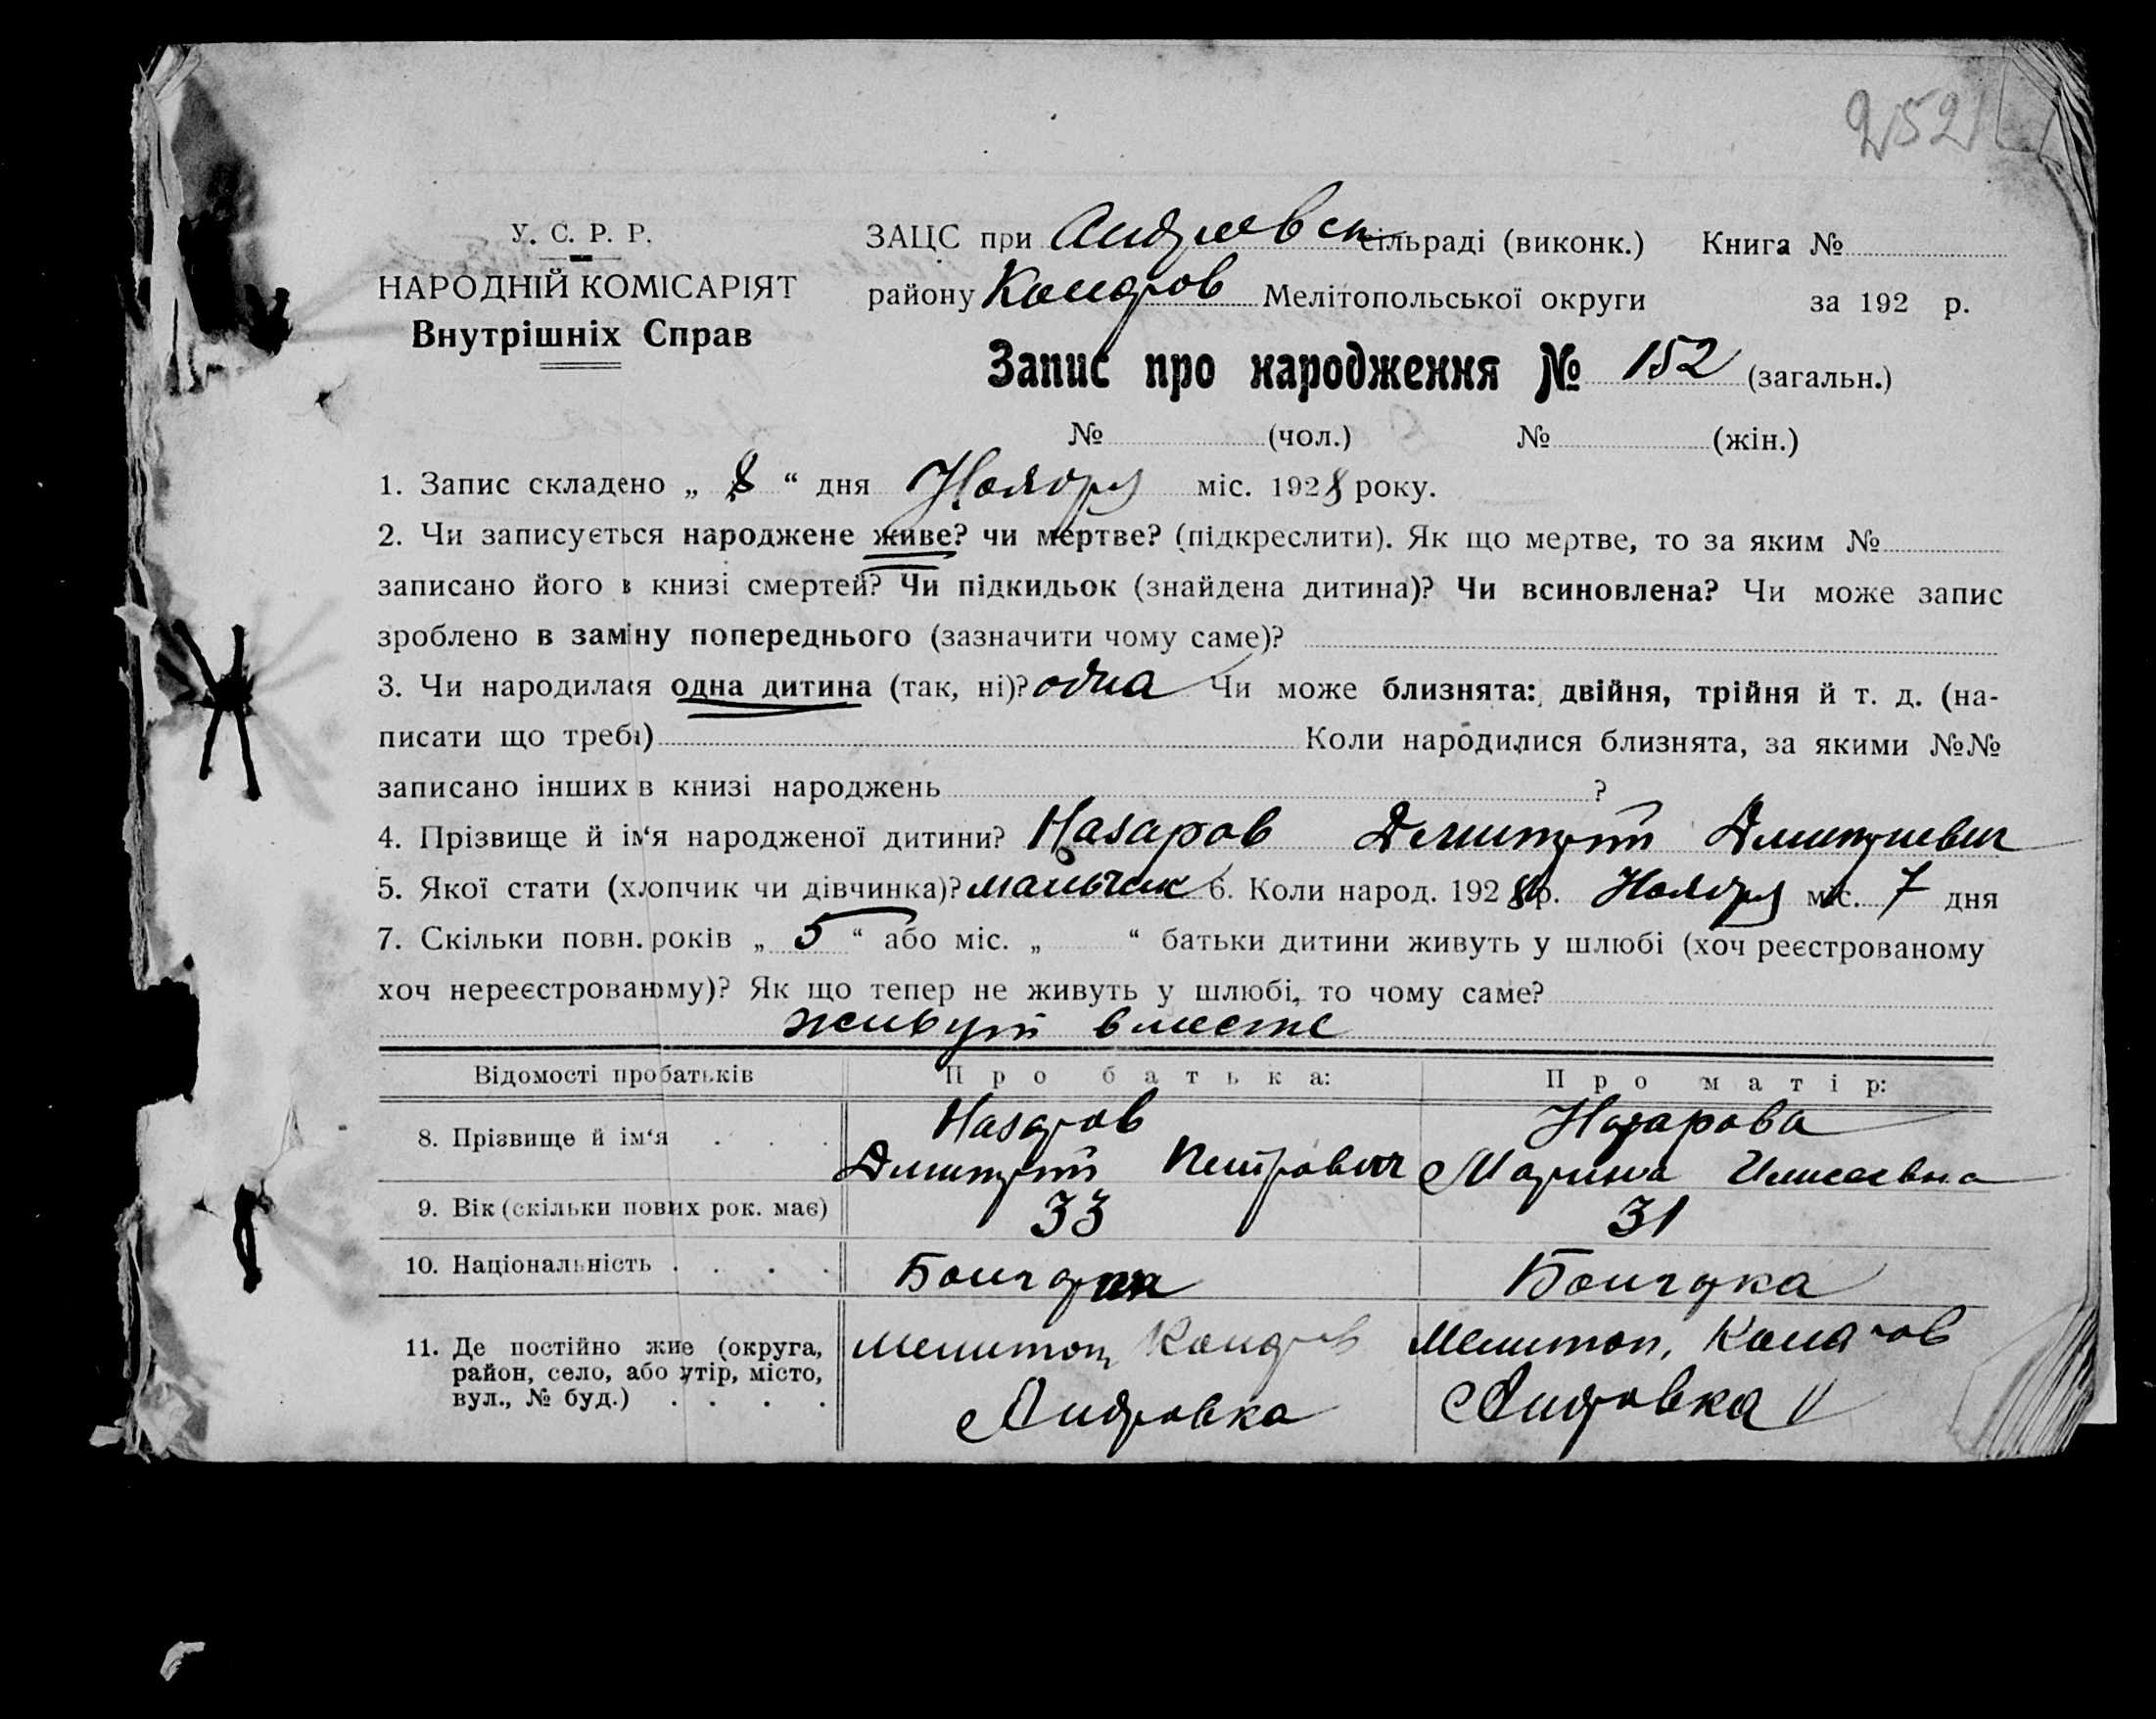 252
У. С. Р. Р.
НАРОДНІЙ КОМІСАРІЯТ
Внутрішніх Справ
ЗАЦС при Андреевск сільраді (виконк.) Книга №
району Кондров Мелітопольської округи за 192 р.
Запис про народження № 152 (загальн.)
№ (чол.) № (жін.)
1. Запис складено „ 8 “ дня Ноября міс. 1928 року.
2. Чи записується народжене живе? чи мертве? (підкреслити). Як що мертве, то за яким №
записано його в книзі смертей? Чи підкидьок (знайдена дитина)? Чи всиновлена? Чи може запис
зроблено в заміну попереднього (зазначити чому саме)?
3. Чи народилася одна дитина (так, ні)? одна Чи може близнята: двійня, трійня й т. д. (на-
писати що треба) Коли народилися близнята, за якими №№
записано інших в книзі народжень ?
4. Прізвище й ім‘я народженої дитини? Назаров Дмитрий Дмитриевич
5. Якої стати (хлопчик чи дівчинка)? мальчик 6. Коли народ. 1928 р. Ноября міс. 7 дня
7. Скільки повн. років „ 5 “ або міс. „ “ батьки дитини живуть у шлюбі (хоч реєстрованому
хоч нереєстрованому)? Як що тепер не живуть у шлюбі, то чому саме?
живут вместе
Відомості про батьків Про батька: Про матір:
8. Прізвище й ім‘я . . . Назаров Назарова
Дмитрий Петрович Марина
9. Вік (скільки повних рок. має) 33 31
10. Національність . . . . Болгарин Болгарка
11. Де постійно живе (округа, Мелитоп, Кондров Мелитоп, Кондров
район, село, або хутір, місто,
вул., № буд.) . . . . Андровка Андровка